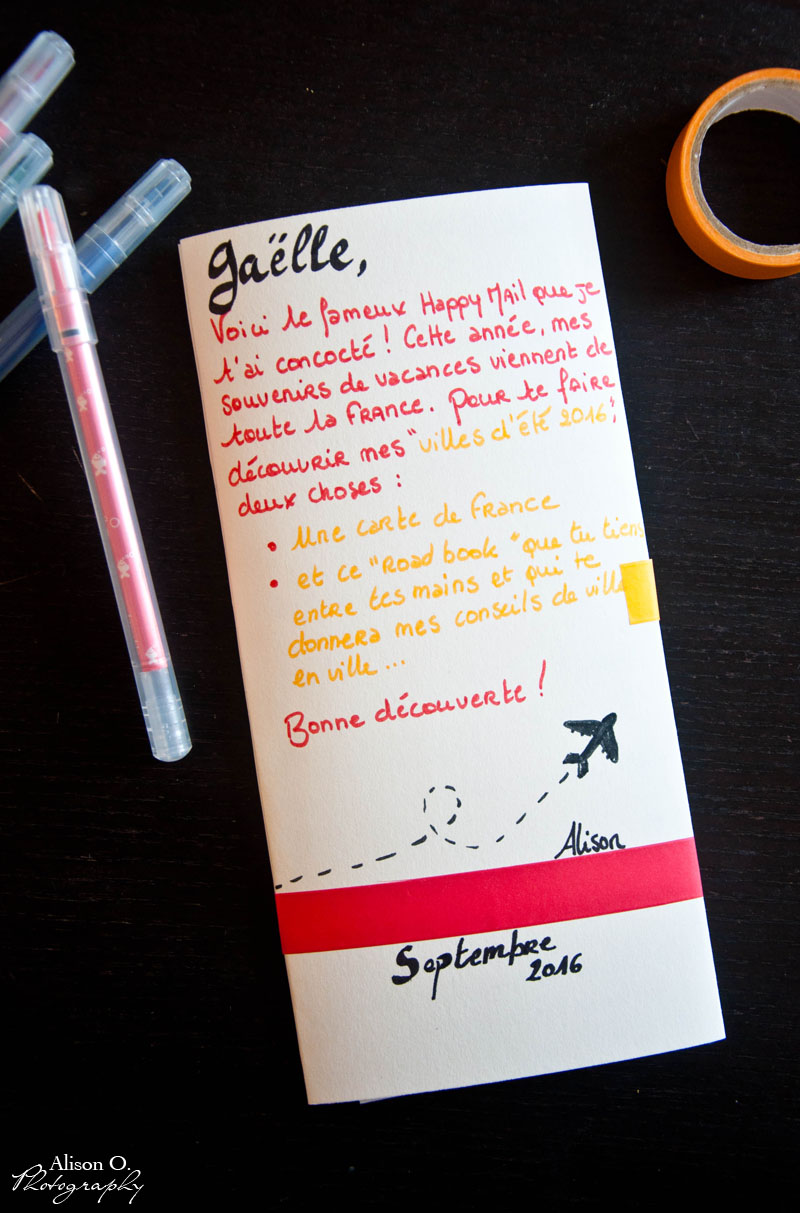 Gaëlle,
Voici le fameux Happy Mail que je
t'ai concocté ! Cette année, mes
souvenirs de vacances viennent de
toute la France. Pour te faire
découvrir mes "villes d'été 2016",
deux choses :
• Une carte de France
• et ce "Road book" que tu tiens
entre tes mains et qui te
donnera mes conseils de ville
en ville ...
Bonne découverte !
Alison
Septembre
2016
Alison O.
Photography